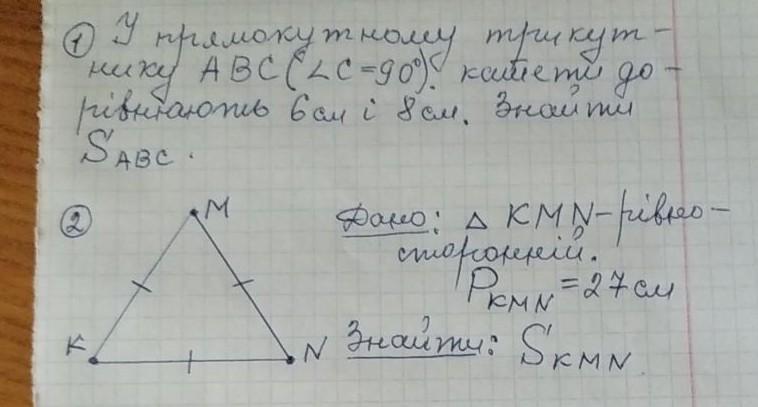 ① У прямокутному трикут-
нику ABC (∠C=90°). катети до-
рівнюють 6 см і 8 см. Знайти
S_ABC.
② M Дано: △ KMN-рівно-
сторонній.
P_KMN = 27 см
K N Знайти: S_KMN